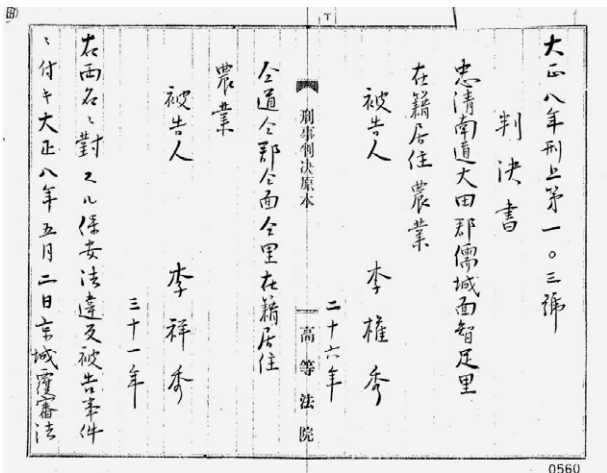 大正八年刑上第一〇三號
判決書
忠清南道大田郡儒城面智足里
在籍居住 農業
被告人 李權秀
二十六年
刑事判決原本
高等法院
仝道仝郡仝面仝里在籍居住
農業
被告人 李祥秀
三十一年
右両名ニ對スル保安法違反被告事件
ニ付キ大正八年五月二日京城覆審法
0560